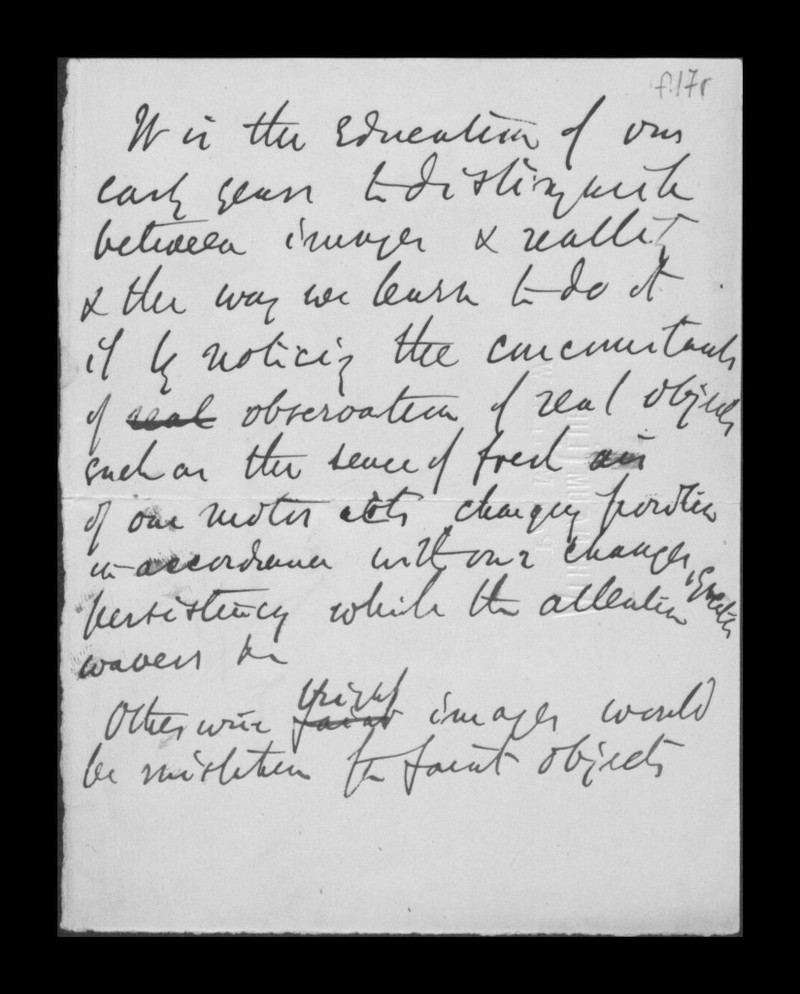 f.17r
It is the education of our
early years to distinguish
between images & reality
& the way we learn to do it
is by noticing the circumstances
of real observation of real objects
such as the sense of fresh air
of our motor acts, changing position
in accordance with our changes, greater
persistency while the attention
wavers &c
Otherwise bright faint images would
be mistaken for faint objects